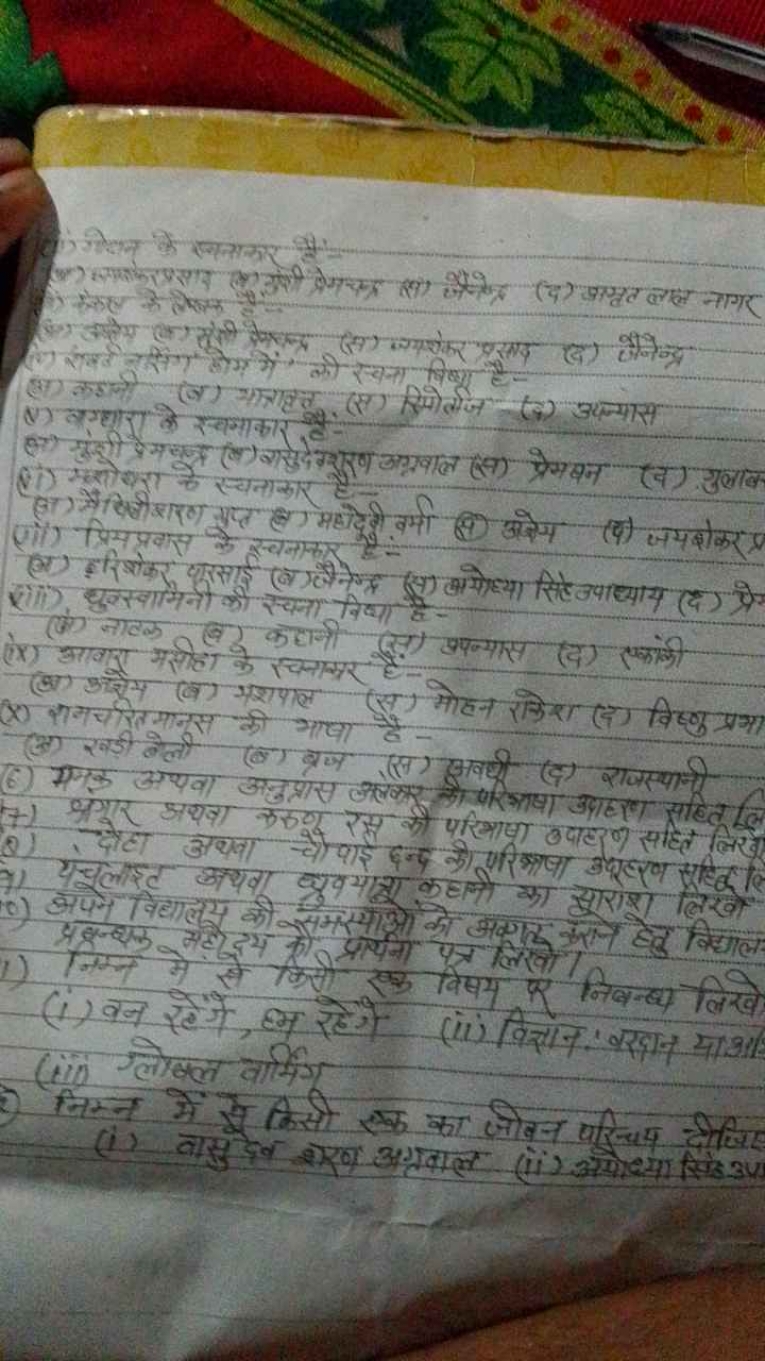 गोदान के रचनाकार हैं-
(अ) जयशंकर प्रसाद (ब) मुंशी प्रेमचन्द्र (स) जैनेन्द्र (द) अमृत लाल नागर
कंकाल के लेखक हैं-
(अ) अज्ञेय (ब) मुंशी प्रेमचन्द्र (स) जयशंकर प्रसाद (द) जैनेन्द्र
राबर्ट नर्सिंग होम में' की रचना विधा है-
(अ) कहानी (ब) यात्रावृत्त (स) रिपोर्ताज (द) उपन्यास
v) वाग्धारा के रचनाकार हैं-
(अ) मुंशी प्रेमचन्द्र (ब) वासुदेवशरण अग्रवाल (स) प्रेमघन (द) गुलाब
vi) यशोधरा के रचनाकार हैं-
(अ) मैथिलीशरण गुप्त (ब) महादेवी वर्मा (स) अज्ञेय (द) जयशंकर प्र
vii) प्रियप्रवास के रचनाकार हैं-
(अ) हरिशंकर परसाई (ब) जैनेन्द्र (स) अयोध्या सिंह उपाध्याय (द) प्रे
viii) ध्रुवस्वामिनी की रचना विधा है-
(अ) नाटक (ब) कहानी (स) उपन्यास (द) एकांकी
(ix) आवारा मसीहा के रचनाकार हैं-
(अ) अज्ञेय (ब) यशपाल (स) मोहन राकेश (द) विष्णु प्रभा
(x) रामचरितमानस की भाषा है-
(अ) खड़ी बोली (ब) ब्रज (स) अवधी (द) राजस्थानी
(6) यमक अथवा अनुप्रास अलंकार की परिभाषा उदाहरण सहित लि
7) श्रृंगार अथवा करुण रस की परिभाषा उदाहरण सहित लिखो
8) दोहा अथवा चौपाई छन्द की परिभाषा उदाहरण सहित लि
9) पंचलाइट अथवा ध्रुवयात्रा कहानी का सारांश लिखो
10) अपने विद्यालय की समस्याओं को अवगत कराने हेतु विद्याल
प्रबन्धक महोदय को प्रार्थना पत्र लिखो।
1) निम्न में से किसी एक विषय पर निबन्ध लिखो
(i) वन रहेंगे, हम रहेंगे (ii) विज्ञान : वरदान या अभि
(iii) ग्लोबल वार्मिंग
2) निम्न में से किसी एक का जीवन परिचय दीजिए
(i) वासुदेव शरण अग्रवाल (ii) अयोध्या सिंह उपा